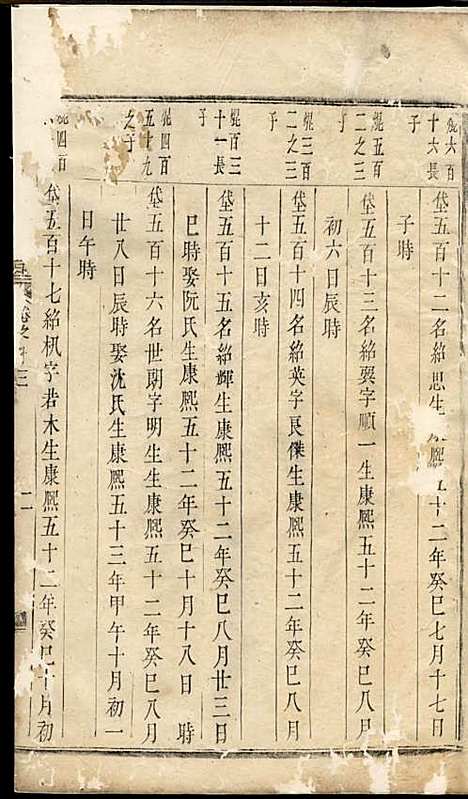 焜六百
十六長
子
垡五百十二名紹思生康熙五十二年癸巳七月十七日
子時
焜五百
二之三
子
垡五百十三名紹巽字順一生康熙五十二年癸巳八月
初六日辰時
焜三百
二之三
子
垡五百十四名紹英字良傑生康熙五十二年癸巳八月
十二日亥時
焜百三
十一長
子
垡五百十五名紹輝生康熙五十二年癸巳八月廿三日
巳時娶阮氏生康熙五十二年癸巳十月十八日 時
焜四百
五十九
之子
垡五百十六名世朝字明生生康熙五十二年癸巳八月
廿八日辰時娶沈氏生康熙五十三年甲午十月初一
日午時
焜四百
垡五百十七紹杋字若木生康熙五十二年癸巳十月初
二